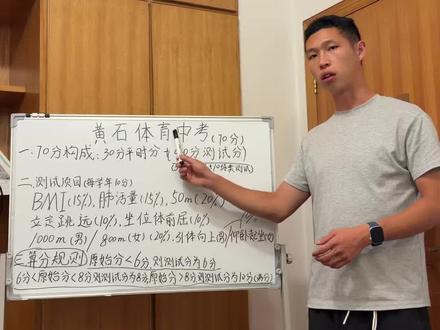 黄石体育中考(70分)
一.70分构成:30分平时分+(40分测试分)
二.测试项目(每学年10分)
BMI(15%),肺活量(15%),50m(20%)
立定跳远(10%),坐位体前屈(10%)
1000m(男)/800m(女)(20%),引体向上(男)/仰卧起坐(女)
三.算分规则)原始分<6分,则测试分为6分
6分<原始分<8分则测试分为8分,原始分>8分则测试分为10分(满分)